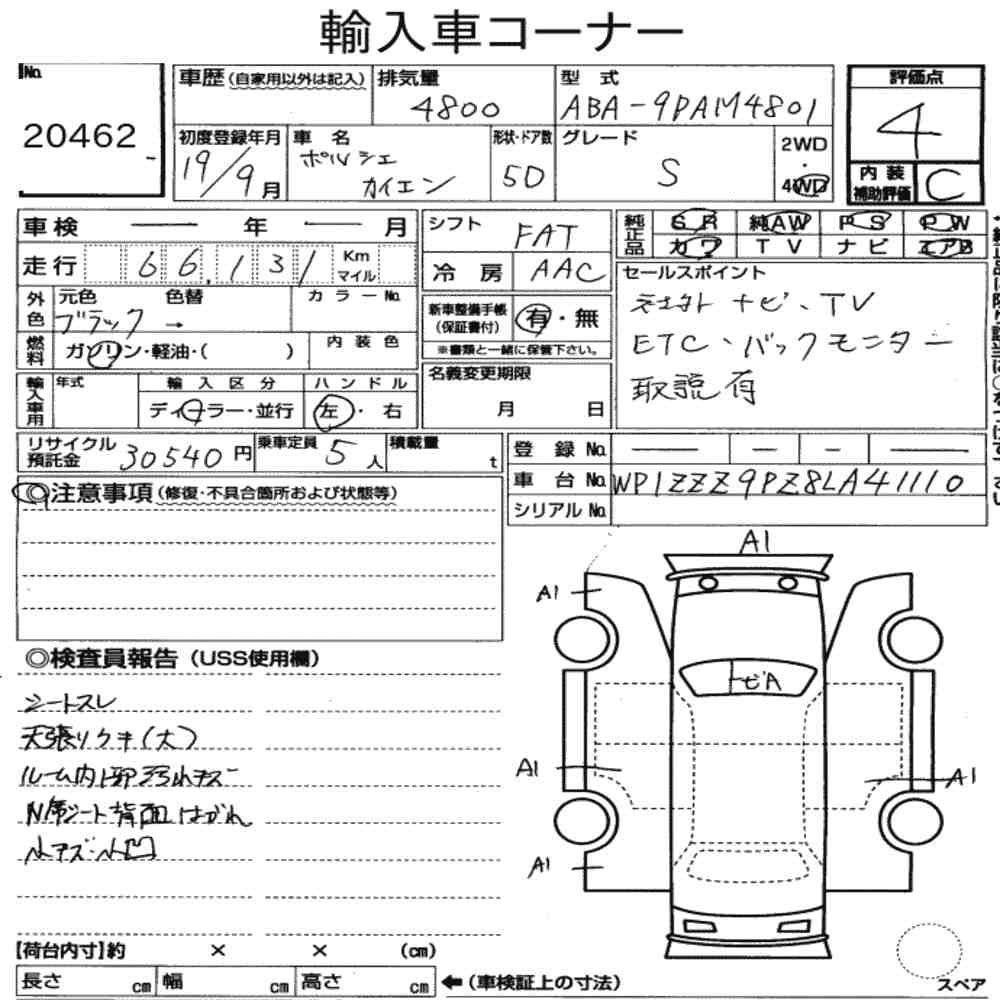 輸入車コーナー
No. 20462
車歴 (自家用以外は記入)
排気量 4800
型式 ABA-9PAM4801
評価点 4
初度登録年月 19/9月
車名 ポルシェ カイエン
形状・ドア数 5D
グレード S
2WD・4WD
内装補助評価 C
車検 ― 年 ― 月
シフト FAT
純正品 SR 純AW PS PW
カワ TV ナビ エアB
走行 66,131 Km マイル
冷房 AAC
セールスポイント
ナビ、TV
ETC、バックモニター
取説有
外色 元色 ブラック → 色替 カラーNo.
新車整備手帳(保証書付) 有・無
※書類と一緒に保管下さい。
燃料 ガソリン・軽油・( ) 内装色
名義変更期限 月 日
輸入車用 年式 輸入区分 ディーラー・並行 ハンドル 左・右
リサイクル預託金 30540円 乗車定員 5人 積載量 t
登録No. ― ― ― ―
車台No. WP1ZZZ9PZ8LA41110
シリアルNo.
◎注意事項(修復・不具合箇所および状態等)
A1
A1
◎検査員報告(USS使用欄)
シートスレ
天張りウキ(大)
ルーム内 汚れキズ
N席シート背面はがれ
小凹
ビA
A1
A1
A1
【荷台内寸】約 × × (cm)
長さ cm 幅 cm 高さ cm ←(車検証上の寸法)
スペア